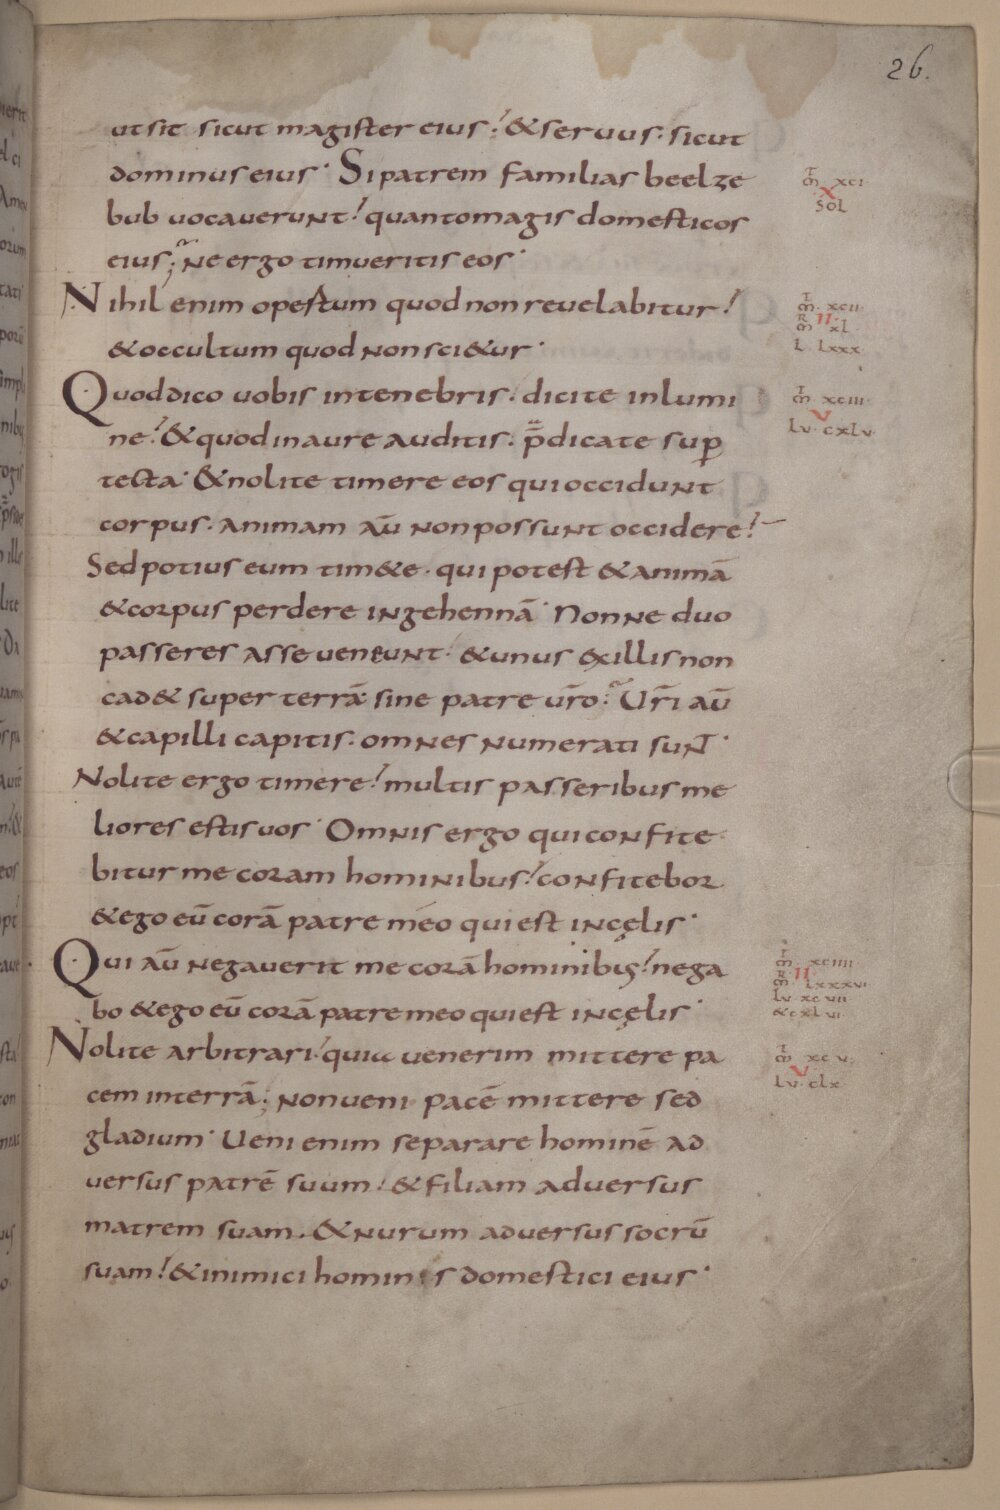 26.
ut sit sicut magister eius. & seruus. sicut
dominus eius. Si patrem familias beelze
bub uocauerunt. quanto magis domesticos
eius; ne ergo timueritis eos.
Nihil enim opestum quod non reuelabitur.
& occultum quod non sci&ur.
Quod dico uobis in tenebris. dicite in lumi
ne. & quod in aure auditis. p̄dicate sup
tecta. & nolite timere eos qui occidunt
corpus. animam aū non possunt occidere.
Sed potius eum tim&e. qui potest & animā
& corpus perdere in gehennā. Nonne duo
passeres asse ueneunt. & unus &xillis non
cad& super terrā sine patre ur̄o. Ur̄i aū
& capilli capitis. omnes numerati sunt.
Nolite ergo timere. multis passeribus me
liores estis uos. Omnis ergo qui confite
bitur me coram hominibus. confitebor
& ego eū corā patre meo qui est in cęlis.
Qui aū negauerit me corā hominibus. nega
bo & ego eū corā patre meo qui est in cęlis.
Nolite arbitrari. quia uenerim mittere pa
cem in terrā; non ueni pacē mittere sed
gladium. Ueni enim separare hominē ad
uersus patrē suum. & filiam aduersus
matrem suam. & nurum aduersus socrū
suam. & inimici hominis domestici eius.
m xci
x
sol
m xcii
ii
m xl
l lxxx
m xciii
v
lu cxlv
m xciiii
ii
m lxxxvi
lu xcvii
& cxlvi
m xcv
v
lu clx